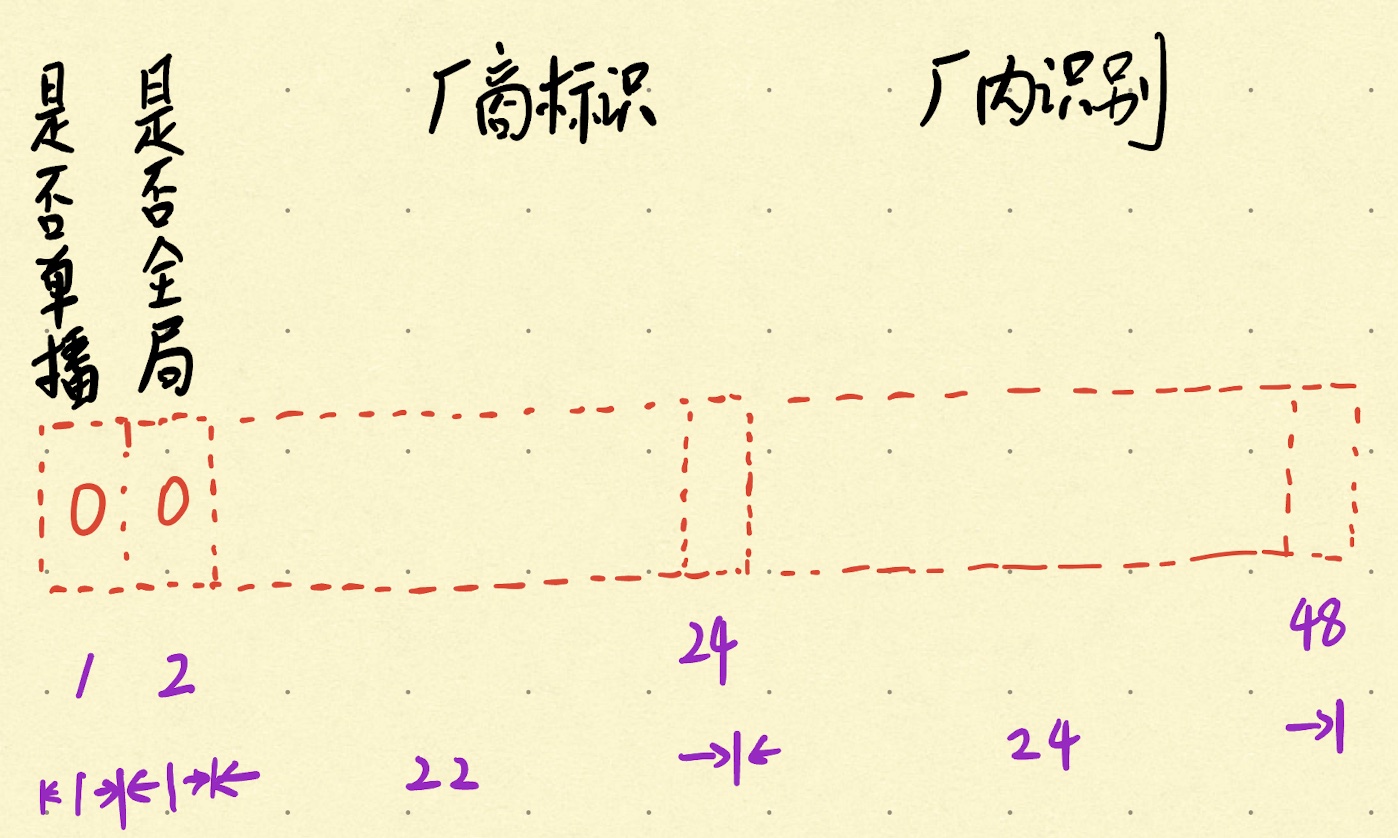 是否单播
是否全局
厂商标识
厂内识别
0 0
1 2 24 48
1 1 22 24